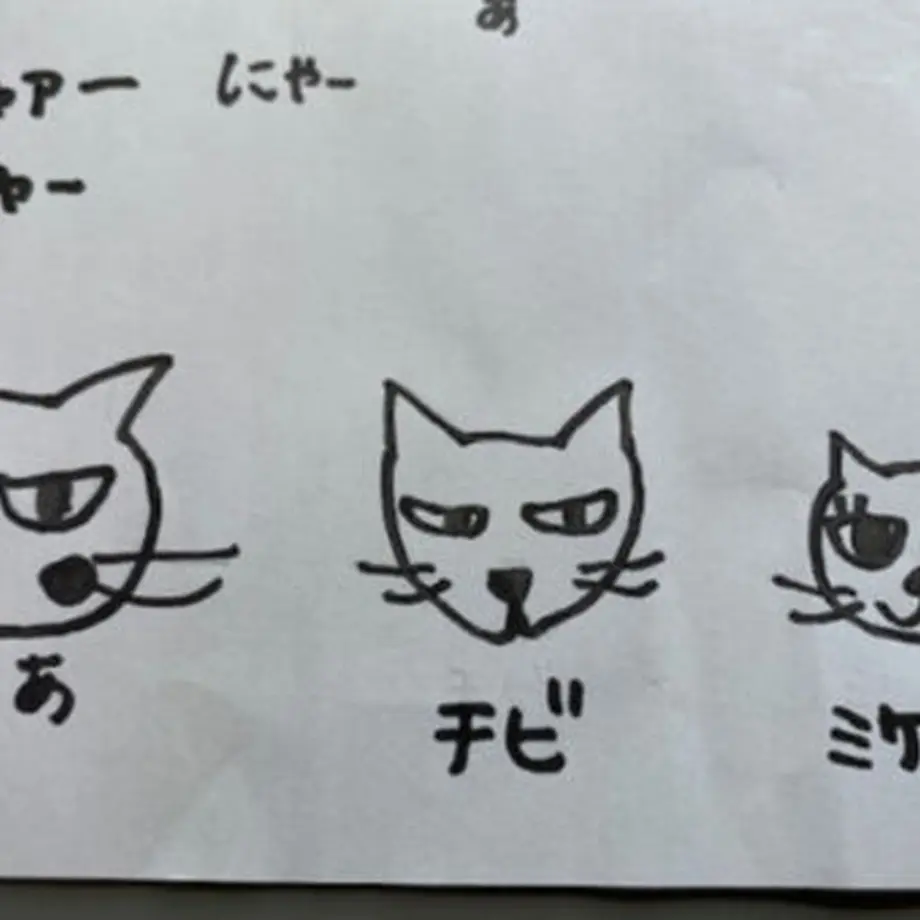 あ
ァー にゃー
ゃー
あ チビ ミケ